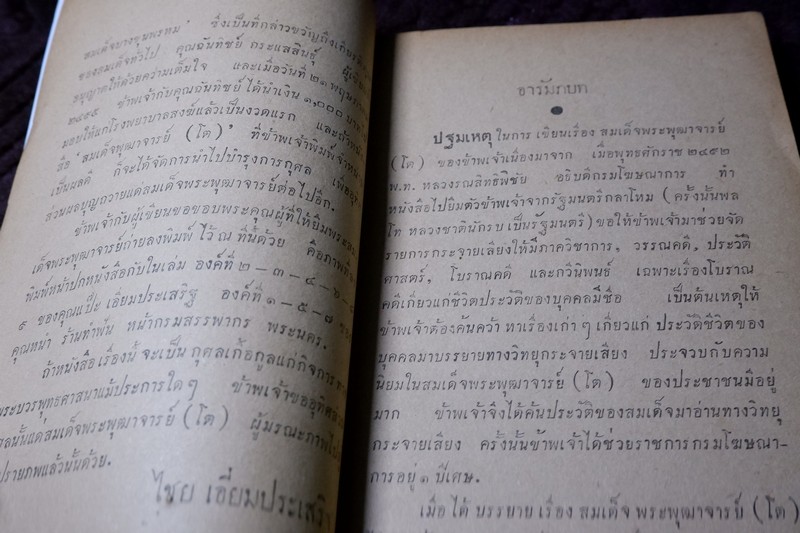 สมเด็จบางขุนพรหม' ซึ่งเป็นที่กล่าวขวัญถึงเกียรติ
ของสมเด็จทั่วไป คุณฉันทิชย์ กระแสสินธุ์ ผู้เขียน
อนุญาตให้ด้วยความเต็มใจ และเมื่อวันที่ ๒๑ พฤษภา
๒๔๙๕ ข้าพเจ้ากับคุณฉันทิชย์ ได้นำเงิน ๑,๐๐๐ บาท
มอบให้แก่โรงพยาบาลสงฆ์แล้วเป็นงวดแรก และถ้าหนัง
สือ 'สมเด็จพุฒาจารย์ (โต)' ที่ข้าพเจ้าพิมพ์จำหน่าย
เป็นผลดี ก็จะได้จัดการนำไปบำรุงการกุศล เพื่ออุทิศ
ส่วนผลบุญถวายแด่สมเด็จพระพุฒาจารย์ต่อไปอีก.
ข้าพเจ้ากับผู้เขียนขอขอบพระคุณผู้ที่ให้ยืมพระสม
เด็จพระพุฒาจารย์ถ่ายลงพิมพ์ ไว้ ณ ที่นี้ด้วย คือภาพที่
พิมพ์หน้าปกหนังสือกับในเล่ม องค์ที่ ๒ – ๓ – ๔ – ๖ – ๘
๙ ของคุณแป๊ะ เอี่ยมประเสริฐ องค์ที่ ๑ – ๕ – ๗ ของ
คุณหน่ำ ร้านทำฟัน หน้ากรมสรรพากร พระนคร.
ถ้าหนังสือเรื่องนี้ จะเป็นกุศลเกื้อกูลแก่กิจการทาง
พระบวรพุทธศาสนาแม้ประการใด ๆ ข้าพเจ้าขออุทิศส่วน
ผลนั้นแด่สมเด็จพระพุฒาจารย์ (โต) ผู้มรณะภาพไป
ปรายภพแล้วนั้นด้วย.
ไชย เอี่ยมประเสริฐ
อารัมภบท
ปฐมเหตุ ในการ เขียนเรื่อง สมเด็จพระพุฒาจารย์
(โต) ของข้าพเจ้าเนื่องมาจาก เมื่อพุทธศักราช ๒๔๙๒
พ.ท. หลวงรณสิทธิพิชัย อธิบดีกรมโฆษณาการ ทำ
หนังสือไปยืมตัวข้าพเจ้าจากรัฐมนตรีกลาโหม (ครั้งนั้นพล
โท หลวงชาตินักรบ เป็นรัฐมนตรี) ขอให้ข้าพเจ้ามาช่วยจัด
รายการกระจายเสียงให้มีภาควิชาการ, วรรณคดี, ประวัติ
ศาสตร์, โบราณคดี และกวีนิพนธ์ เฉพาะเรื่องโบราณ
คดีเกี่ยวแก่ชีวิตประวัติของบุคคลมีชื่อ เป็นต้นเหตุให้
ข้าพเจ้าต้องค้นคว้า หาเรื่องเก่า ๆ เกี่ยวแก่ ประวัติชีวิตของ
บุคคลมาบรรยายทางวิทยุกระจายเสียง ประจวบกับความ
นิยมในสมเด็จพระพุฒาจารย์ (โต) ของประชาชนมีอยู่
มาก ข้าพเจ้าจึงได้ค้นประวัติของสมเด็จมาอ่านทางวิทยุ
กระจายเสียง ครั้งนั้นข้าพเจ้าได้ช่วยราชการกรมโฆษณา-
การอยู่ ๑ ปีเศษ.
เมื่อ ได้ บรรยาย เรื่อง สมเด็จ พระพุฒาจารย์ (โต)